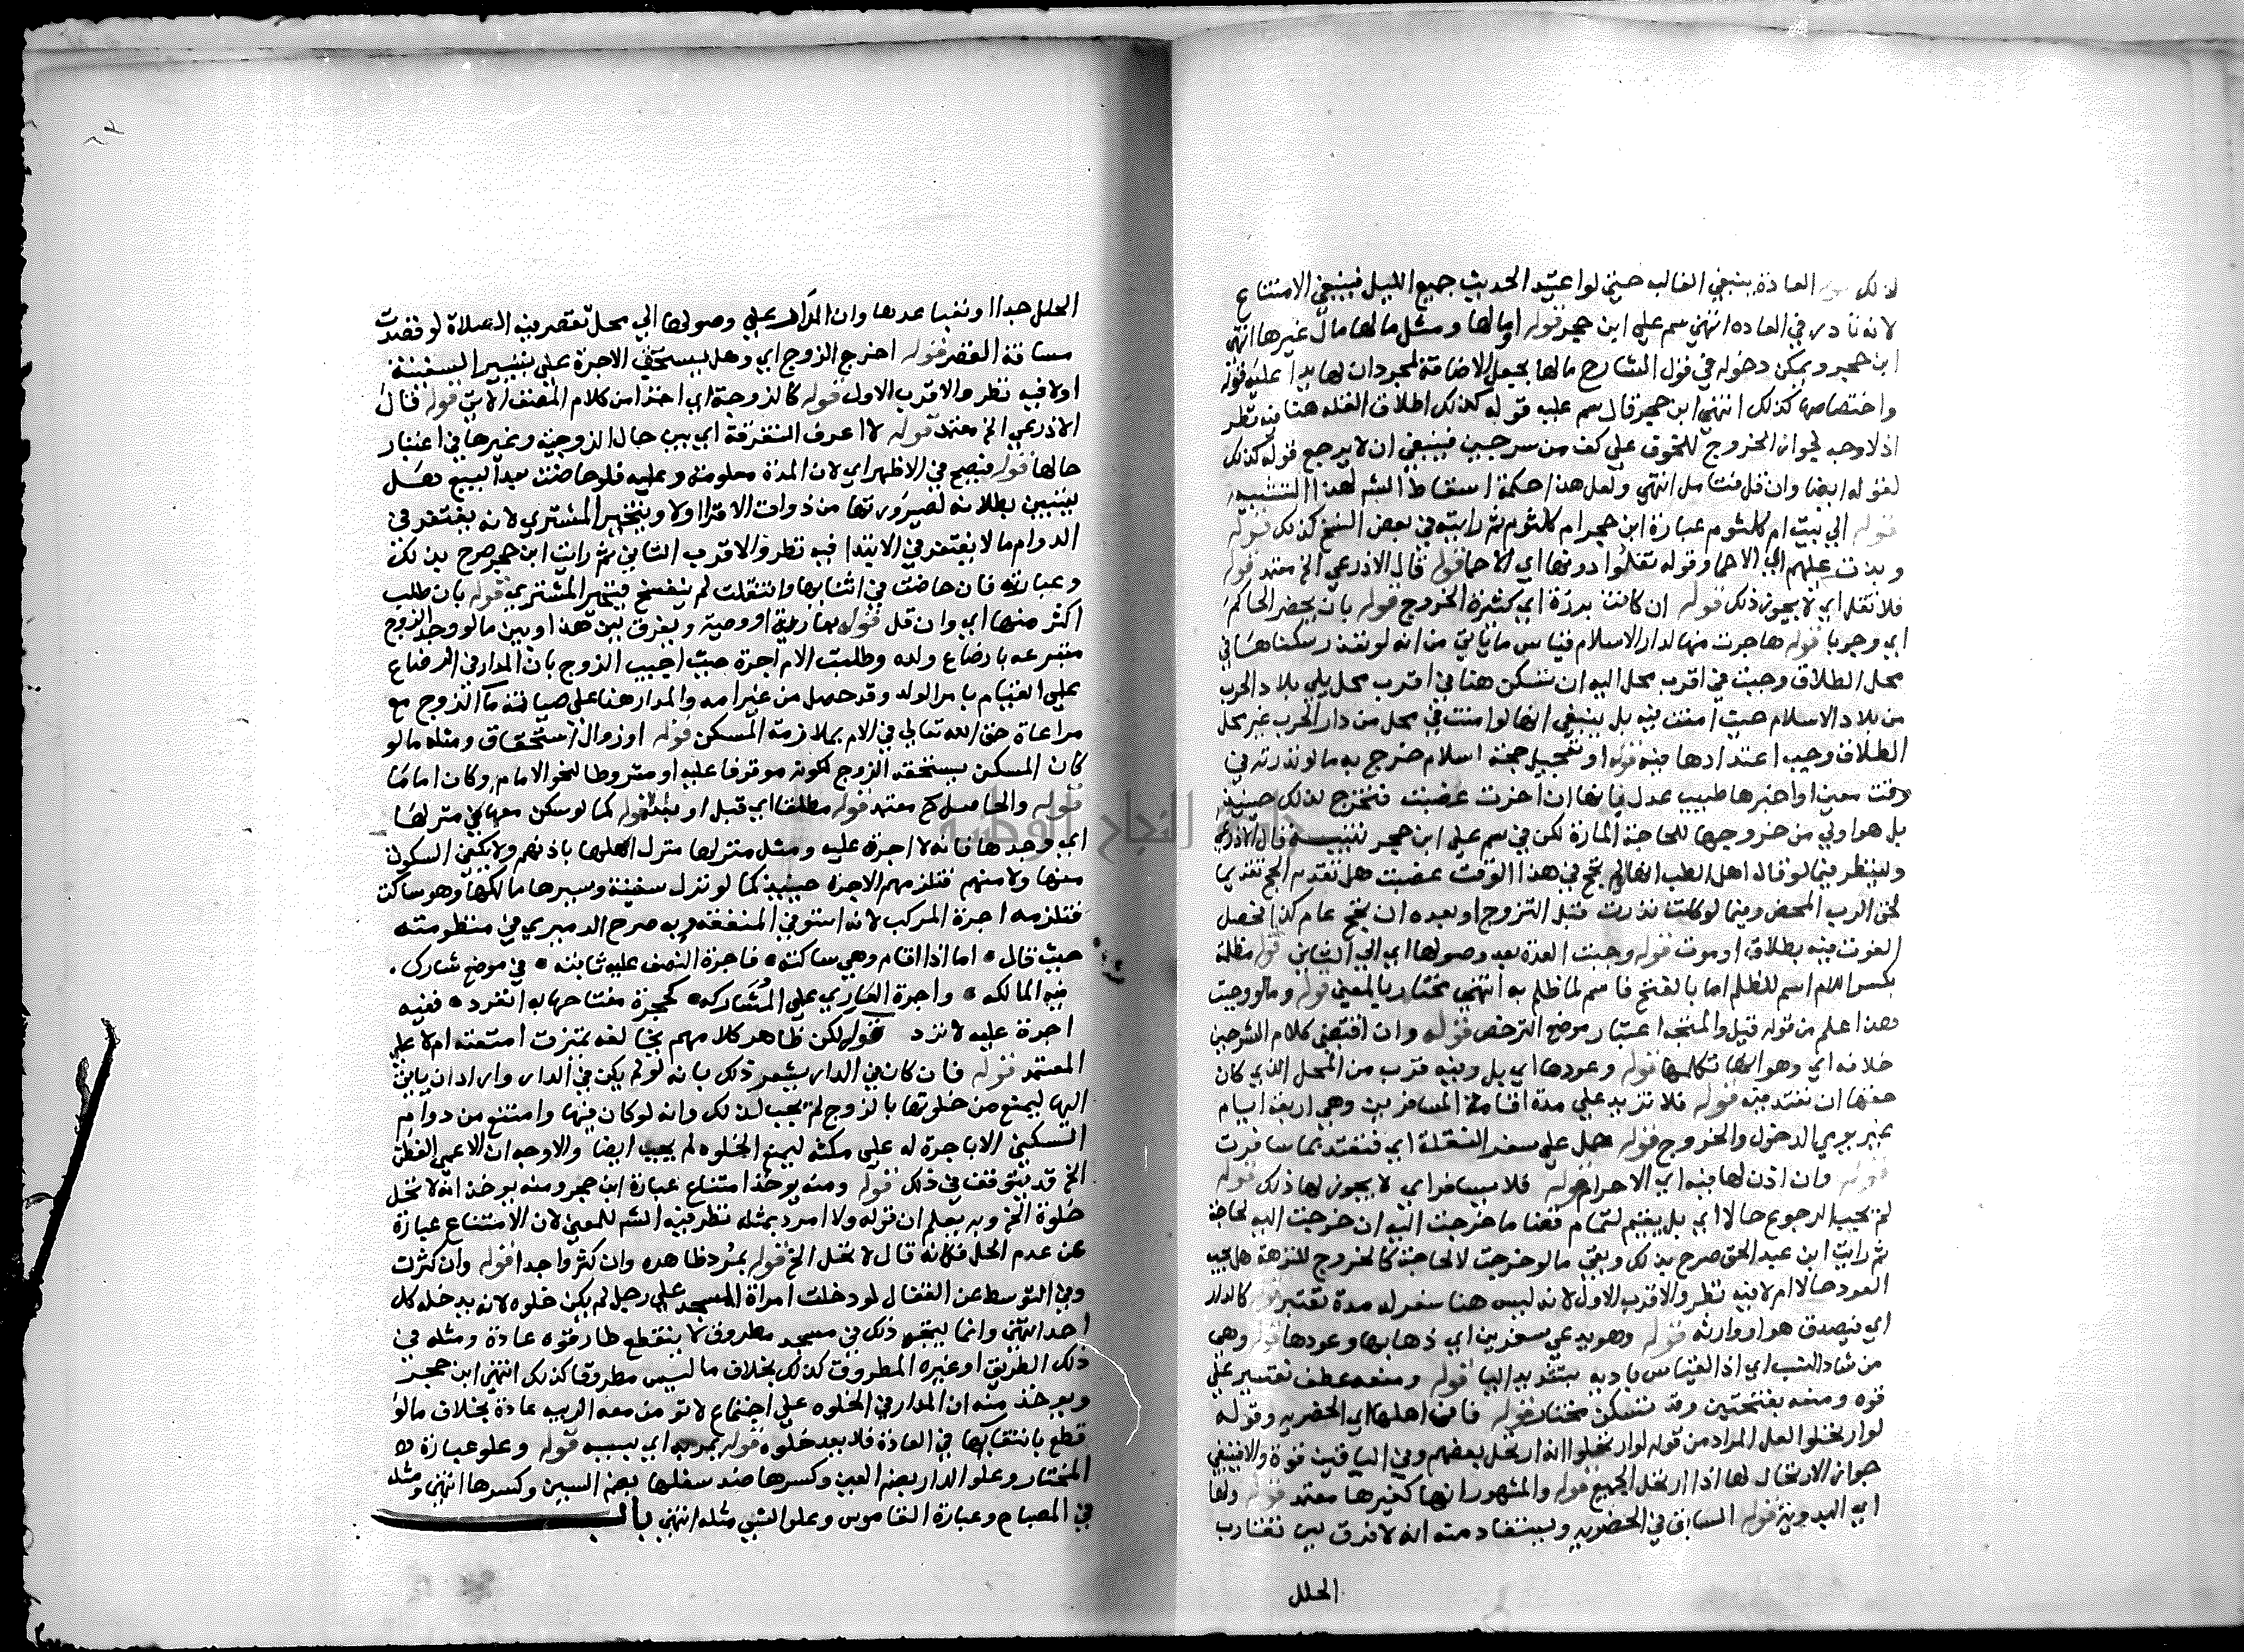 لذلك قوله العادة ينبغي الغالب حتى لو اعتيد الحديث جميع الليل فينبغي الامتناع
لانه نادر في العاده انتهى سم على ابن حجر قوله او مالها ومثل مالها مال غيرها انتهى
ابن حجر ويمكن دخوله في قول الشارح مالها بجعل الاضافة لمجرد ان لها يدا عليه قوله
واختصاصها كذلك انتهى ابن حجر قال سم عليه قوله كذلك اطلاق القله هنا فيه نظر
اذ لا وجه لجواز الخروج للخوف على كف من سرجين فينبغي ان لا يرجع قوله كذلك
لقوله ايضا وان قل فتامل انتهى ولعل هذا حكمة اسقاط الشم لهذا التشبيه
قوله الى بيت ام كلثوم عبارة ابن حجر ام كلثوم ثم رايته في بعض النسخ كذلك قوله
وبذت عليهم اي الاحما وقوله نقلوا دونها اي الاحما قوله قال الاذرعي الخ معتمد قوله
فلا نقل اي لا يجوز ذلك قوله ان كانت برزة اي كثيرة الخروج قوله بان يحضر الحاكم
اي وجوبا قوله هاجرت منها لدار الاسلام قياس ما ياتي من انه لو تعذر سكناها في
محل الطلاق وجبت في اقرب محل اليه ان تسكن هنا في اقرب محل يلي بلاد الحرب
من بلاد الاسلام حيث امنت فيه بل ينبغي انها لو امنت في محل من دار الحرب غير محل
الطلاق وجب اعتدادها فيه قوله او تعجيل حجة اسلام خرج به ما لو نذرته في
وقت معين او اخبرها طبيب عدل بانها ان اخرت عضبت فتخرج لذلك حينئذ
بل هو اولى من خروجها للحاجة المارة لكن في سم على ابن حجر تنبيه قال الاذرعي
ولينظر فيما لو قال اهل الطب انها لم تحج في هذا الوقت عضبت هل تقدم الحج تقديما
لحق الرب المحض وفيما لو كانت نذرت قبل التزوج او بعده ان تحج عام كذا فحصل
الفوت فيه بطلاق او موت قوله وجبت العدة بعد وصولها اي الى الثاني قوله مظلة
بكسر اللام اسم للظلم اما بالفتح فاسم لما ظلم به انتهى مختار بالمعنى قوله وما لو وجبت
هذا علم من قوله قبل والمتجه اعتبار موضع الترخص قوله وان اقتضى كلام الشرحين
خلافه اي وهو انها تكلمها قوله وعودها اي بل وفيه قرب من المحل الذي كان
حقها ان تعتد فيه قوله فلا تزيد على مدة اقامة المسافرين وهي اربعة ايام
غير يومي الدخول والخروج قوله حمل على سفر النقلة اي فتعتد بما سافرت
قوله وان اذن لها فيه اي الاحرام قوله فلا يسافر اي لا يجوز لها ذلك قوله
لم يجب الرجوع حالا اي بل يقيم لتمام قضا ما خرجت اليه ان خرجت اليه لحاجة
ثم رايت ابن عبد الحق صرح بذلك وبقي ما لو خرجت لا لحاجة كالخروج للنزهة هل يجب
العود حالا ام لا فيه نظر والاقرب الاول لانه ليس هنا سفر له مدة تعتبر قوله كالدار
اي فيصدق هو او وارثه قوله وهو يدعي سفرين اي ذهابها وعودها قوله وهي
من شاذ النسب اي اذ القياس بادية بتشديد اليا قوله ومنعه عطف تفسير على
قوه ومنعه بفتحتين وقد تسكن مختار قوله فان اهلها اي الحضريه وقوله
لو ارتحلوا لعل المراد من قوله لو ارتحلوا انه ارتحل بعضهم وفي الباقين قوة والا فينبغي
جواز الارتحال لها اذا ارتحل الجميع قوله والمشهور انها كغيرها معتمد قوله ولها
اي البدوية قوله السابق في الحضريه ويستفاد منه انه لا فرق بين تقارب
الحلل
الحلل جدا او تفيا عدها وان المدار على وصولها الى محل تقصر فيه الصلاة لو قصدت
مسافة القصر قوله اخرج الزوج اي وهل يستحق الاجرة على تسيير السفينة
اولا فيه نظر والاقرب الاول قوله كالزوجة اي اخذا من كلام المصنف الاتي قوله قال
الاذرعي الخ معتمد قوله لا اعرف التفرقة اي بين حال الزوجية وغيرها في اعتبار
حالها قوله فيصح في الاظهر اي لان المدة معلومة وعليه فلو حاضت بعد البيع دهل
يتبين بطلانه لصيرورتها من ذوات الاقرا اولا ويتخير المشتري لانه يغتفر في
الدوام ما لا يغتفر في الابتدا فيه نظر والاقرب الثاني ثم رايت ابن حجر صرح بذلك
وعبارته فان حاضت في اثنايها وانتقلت لم ينفسخ فيتخير المشتري قوله بان طلب
اكثر منها اي وان قل قوله بعارية او وصية ويفرق بين هذا وبين ما لو وجد الزوج
متبرعه بارضاع ولده وطلبت الام اجرة حيث اجيب الزوج بان المدار في الارضاع
على القيام بامر الولد وقد حصل من غير امه والمدار هنا على صيانة ما الزوج مع
مراعاة حق الله تعالى في الام بملازمة المسكن قوله او زوال استحقاق ومثله ما لو
كان المسكن يستحقه الزوج لكونه موقوفا عليه او مشروطا لنحو الامام وكان اماما
قوله والحاصل الخ معتمد قوله مطلقا اي قبل او بعد قوله كما لو سكن معها في منزلها
اي وحدها فانه لا اجرة عليه ومثل منزلها منزل اهلها باذنهم ولا يكفي السكوت
منها ولا منهم فتلزمهم الاجرة حينئذ كما لو نزل سفينة وسيرها مالكها وهو ساكت
فتلزمه اجرة المركب لانه استوفى المنفعة وبه صرح الدميري في منظومته
حيث قال ۰ اما اذا اقام وهي ساكته ۰ فاجرة النصف عليه ثابته ۰ في موضع شارك .
فيه المالكه ۰ واجرة العاري على المشاركه ۰ كحجرة مفتاحها به انفرد ۰ ففيه
اجرة عليه لا ترد قوله لكن ظاهر كلامهم يخالفه تميزت امتعته ام لا على
المعتمد قوله فان كان في الدار يشعر ذلك بانه لو لم يكن في الدار واراد ان ياتي
اليها ليمنع من خلوتها بالزوج لم يجب لذلك وانه لو كان فيها وامتنع من دوام
السكنى الا باجرة له على مكثه ليمنع الخلوه لم يجب ايضا والاوجه ان الاعمى الفطن
الخ قد يتوقف في ذلك قوله ومنه يوخذ امتناع عبارة ابن حجر ومنه يوخذ انه لا تحل
خلوة الخ وبه يعلم ان قوله ولا امرد بمثله نظر فيه الشم للمعنى لان الامتناع عبارة
عن عدم الحل فكانه قال لا تحل الخ قوله بمرد ظاهره وان كثروا جدا قوله وان كثرت
وفي التوسط عن القفال لو دخلت امراة المسجد على رجل لم يكن خلوه لانه يدخله كل
احد انتهى وانما يتجه ذلك في مسجد مطروق لا ينقطع طارقوه عادة ومثله في
ذلك الطريق او غيره المطروق كذلك بخلاف ما ليس مطروقا كذلك انتهى ابن حجر
ويوخذ منه ان المدار في الخلوه على اجتماع لا تومن معه الريبه عادة بخلاف ما لو
قطع بانتفايها في العادة فلا يعد خلوه قوله بمريد اي بسببه قوله وعلو عبارة
المختار وعلو الدار بضم العين وكسرها ضد سفلها بضم السين وكسرها انتهى ومثله
في المصباح وعبارة القاموس وعلو الشي مثله انتهى باب